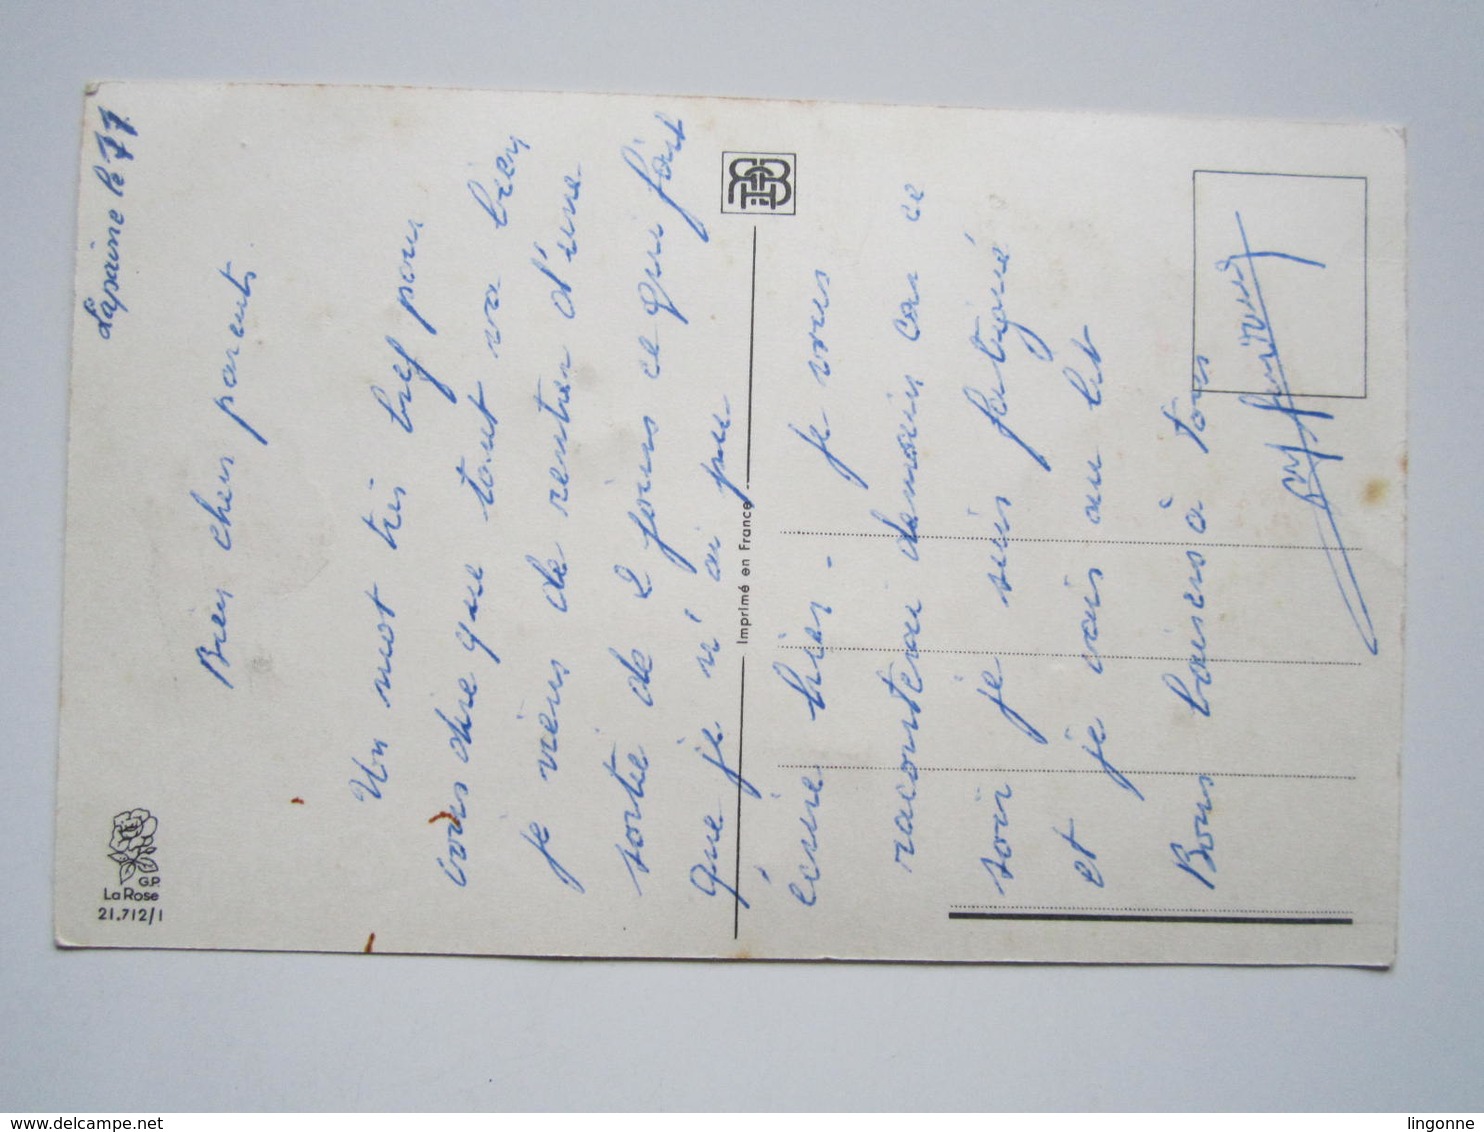 le 11
Bien chers parents
Un mot très bref pour
vous dire que tout va bien
je viens de rentrer d'une
sortie de 2 jours ce qui fait
que je n'ai pu
écrire hier. je vous
raconterai demain car ce
soir je suis fatigué
et je vais au lit
Bons baisers à tous
G.P.
La Rose
21.712/1
Imprimé en France
www.delcampe.net
lingonne